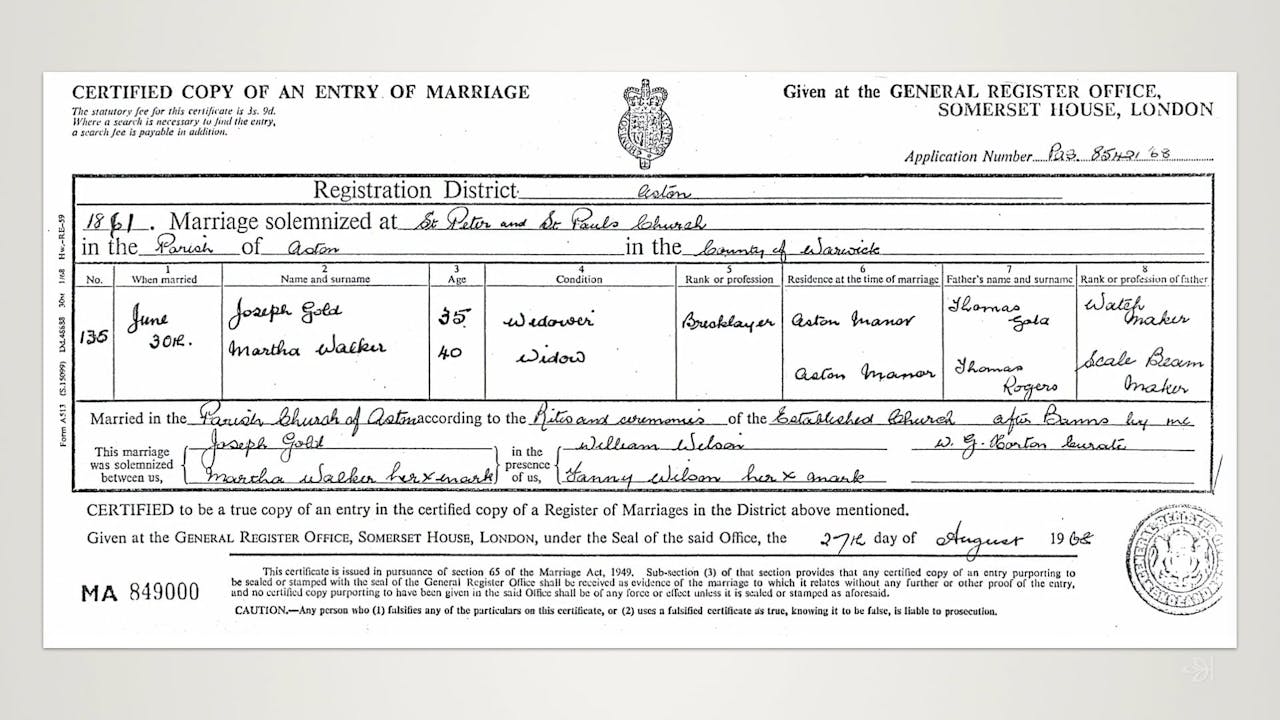 CERTIFIED COPY OF AN ENTRY OF MARRIAGE
The statutory fee for this certificate is 3s. 9d.
Where a search is necessary to find the entry,
a search fee is payable in addition.
Given at the GENERAL REGISTER OFFICE,
SOMERSET HOUSE, LONDON
Application Number
Registration District Aston
1861. Marriage solemnized at St Peter and St Pauls Church
in the Parish of Aston in the County of Warwick
No. 1 When married 2 Name and surname 3 Age 4 Condition 5 Rank or profession 6 Residence at the time of marriage 7 Father's name and surname 8 Rank or profession of father
135 June 30th. Joseph Gold 35 Widower Bricklayer Aston Manor Thomas Gold Watch Maker
Martha Walker 40 Widow Aston Manor Thomas Rogers Scale Beam Maker
Married in the Parish Church of Aston according to the Rites and ceremonies of the Established Church after Banns by me
This marriage was solemnized between us, Joseph Gold in the presence of us, William Wilson W. G. Horton Curate
Martha Walker her x mark Fanny Wilson her x mark
CERTIFIED to be a true copy of an entry in the certified copy of a Register of Marriages in the District above mentioned.
Given at the GENERAL REGISTER OFFICE, SOMERSET HOUSE, LONDON, under the Seal of the said Office, the 27th day of August 1968
MA 849000
This certificate is issued in pursuance of section 65 of the Marriage Act, 1949. Sub-section (3) of that section provides that any certified copy of an entry purporting to
be sealed or stamped with the seal of the General Register Office shall be received as evidence of the marriage to which it relates without any further or other proof of the entry,
and no certified copy purporting to have been given in the said Office shall be of any force or effect unless it is sealed or stamped as aforesaid.
CAUTION.—Any person who (1) falsifies any of the particulars on this certificate, or (2) uses a falsified certificate as true, knowing it to be false, is liable to prosecution.